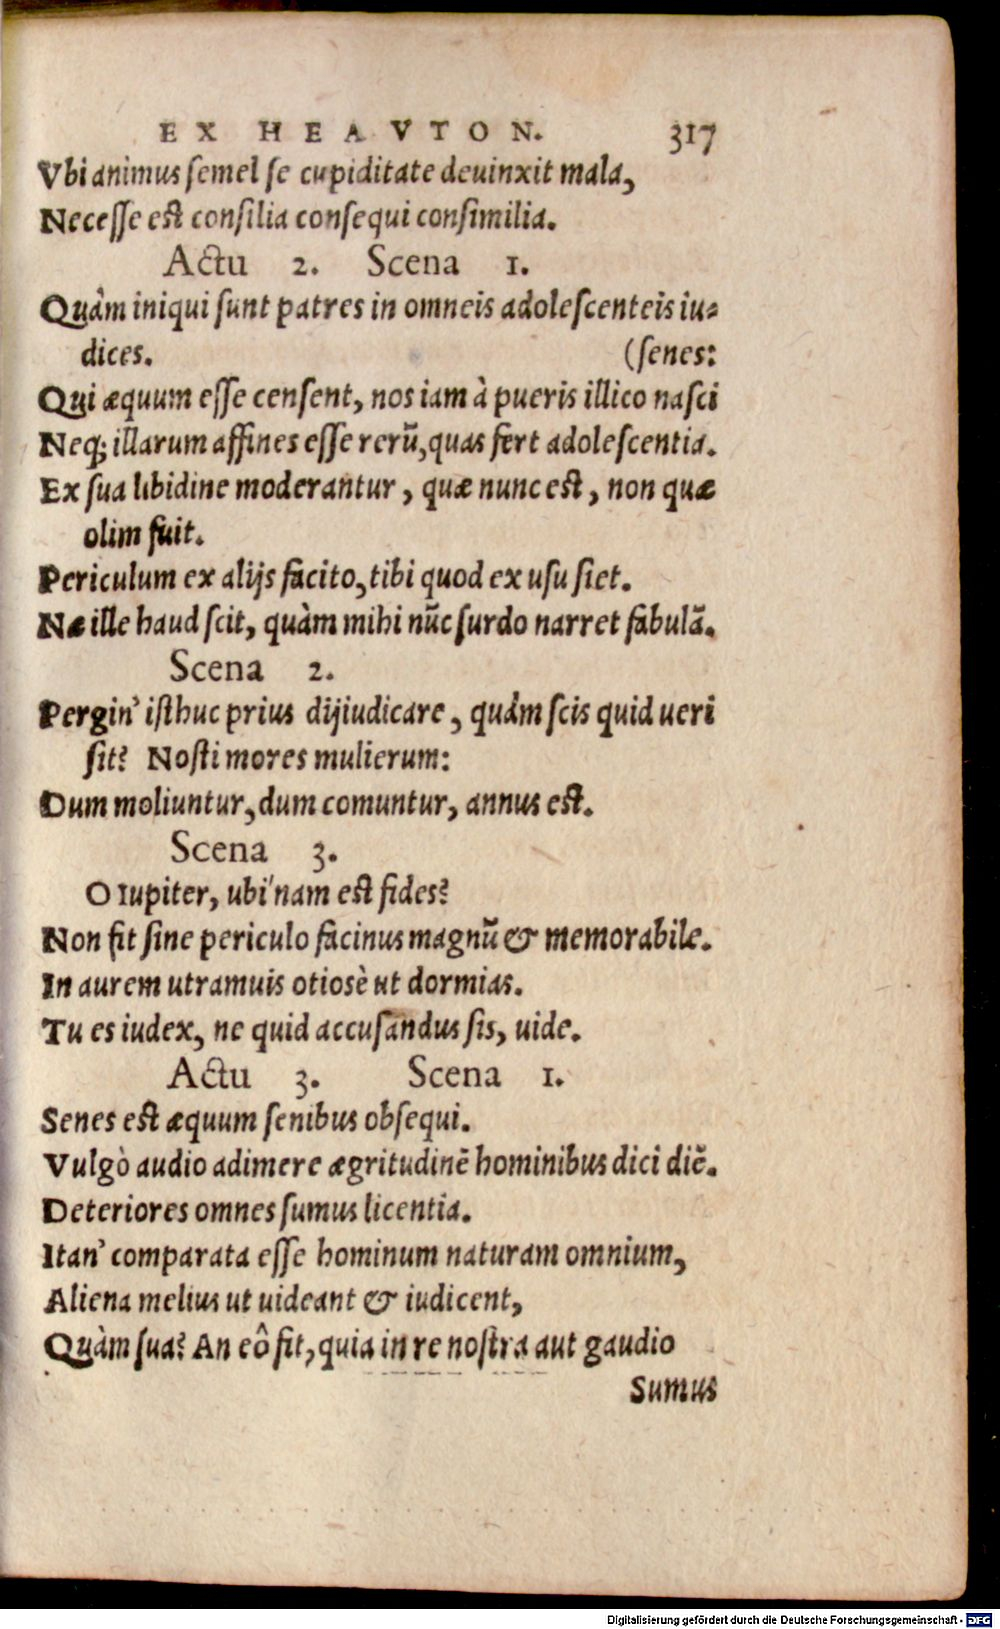 EX HEAVTON. 317
Vbi animus semel se cupiditate deuinxit mala,
Necesse est consilia consequi consimilia.
Actu 2. Scena 1.
Quàm iniqui sunt patres in omneis adolescenteis iu-
dices. (senes:
Qui æquum esse censent, nos iam à pueris illico nasci
Neq; illarum affines esse rerũ, quas fert adolescentia.
Ex sua libidine moderantur, quæ nunc est, non quæ
olim fuit.
Periculum ex alijs facito, tibi quod ex usu siet.
Næ ille haud scit, quàm mihi nũc surdo narret fabulã.
Scena 2.
Pergin' isthuc prius dijiudicare, quàm scis quid ueri
sit? Nosti mores mulierum:
Dum moliuntur, dum comuntur, annus est.
Scena 3.
O Iupiter, ubi'nam est fides?
Non fit sine periculo facinus magnũ & memorabile.
In aurem utramuis otiosè ut dormias.
Tu es iudex, ne quid accusandus sis, uide.
Actu 3. Scena 1.
Senes est æquum senibus obsequi.
Vulgò audio adimere ægritudinẽ hominibus dici diẽ.
Deteriores omnes sumus licentia.
Itan' comparata esse hominum naturam omnium,
Aliena melius ut uideant & iudicent,
Quàm sua? An eô fit, quia in re nostra aut gaudio
Sumus
Digitalisierung gefördert durch die Deutsche Forschungsgemeinschaft - DFG